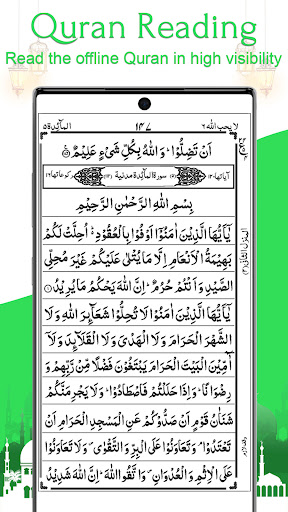 Quran Reading
Read the offline Quran in high visibility
لا يحب الله ٦
١٤٧
المآئدة ٥
اَنۡ تَضِلُّوۡا ؕ وَاللّٰهُ بِكُلِّ شَىۡءٍ عَلِيۡمٌ
سورة المآئدة مدنية
بِسۡمِ اللّٰهِ الرَّحۡمٰنِ الرَّحِيۡمِ
يٰۤاَيُّهَا الَّذِيۡنَ اٰمَنُوۡۤا اَوۡفُوۡا بِالۡعُقُوۡدِ ؕ اُحِلَّتۡ لَكُمۡ
بَهِيۡمَةُ الۡاَنۡعَامِ اِلَّا مَا يُتۡلٰى عَلَيۡكُمۡ غَيۡرَ مُحِلِّى
الصَّيۡدِ وَاَنۡتُمۡ حُرُمٌ ؕ اِنَّ اللّٰهَ يَحۡكُمُ مَا يُرِيۡدُ
يٰۤاَيُّهَا الَّذِيۡنَ اٰمَنُوۡا لَا تُحِلُّوۡا شَعَآٮِٕرَ اللّٰهِ وَلَا
الشَّهۡرَ الۡحَرَامَ وَلَا الۡهَدۡىَ وَلَا الۡقَلَآٮِٕدَ وَلَاۤ
آٰمِّيۡنَ الۡبَيۡتَ الۡحَرَامَ يَبۡتَغُوۡنَ فَضۡلًا مِّنۡ رَّبِّهِمۡ وَ
رِضۡوَانًا ؕ وَاِذَا حَلَلۡتُمۡ فَاصۡطَادُوۡا ؕ وَلَا يَجۡرِمَنَّكُمۡ
شَنَاٰنُ قَوۡمٍ اَنۡ صَدُّوۡكُمۡ عَنِ الۡمَسۡجِدِ الۡحَرَامِ اَنۡ
تَعۡتَدُوۡا ۘ وَتَعَاوَنُوۡا عَلَى الۡبِرِّ وَالتَّقۡوٰى ۖ وَلَا تَعَاوَنُوۡا
عَلَى الۡاِثۡمِ وَالۡعُدۡوَانِ ۖ وَاتَّقُوا اللّٰهَ ؕ اِنَّ اللّٰهَ شَدِيۡدُ